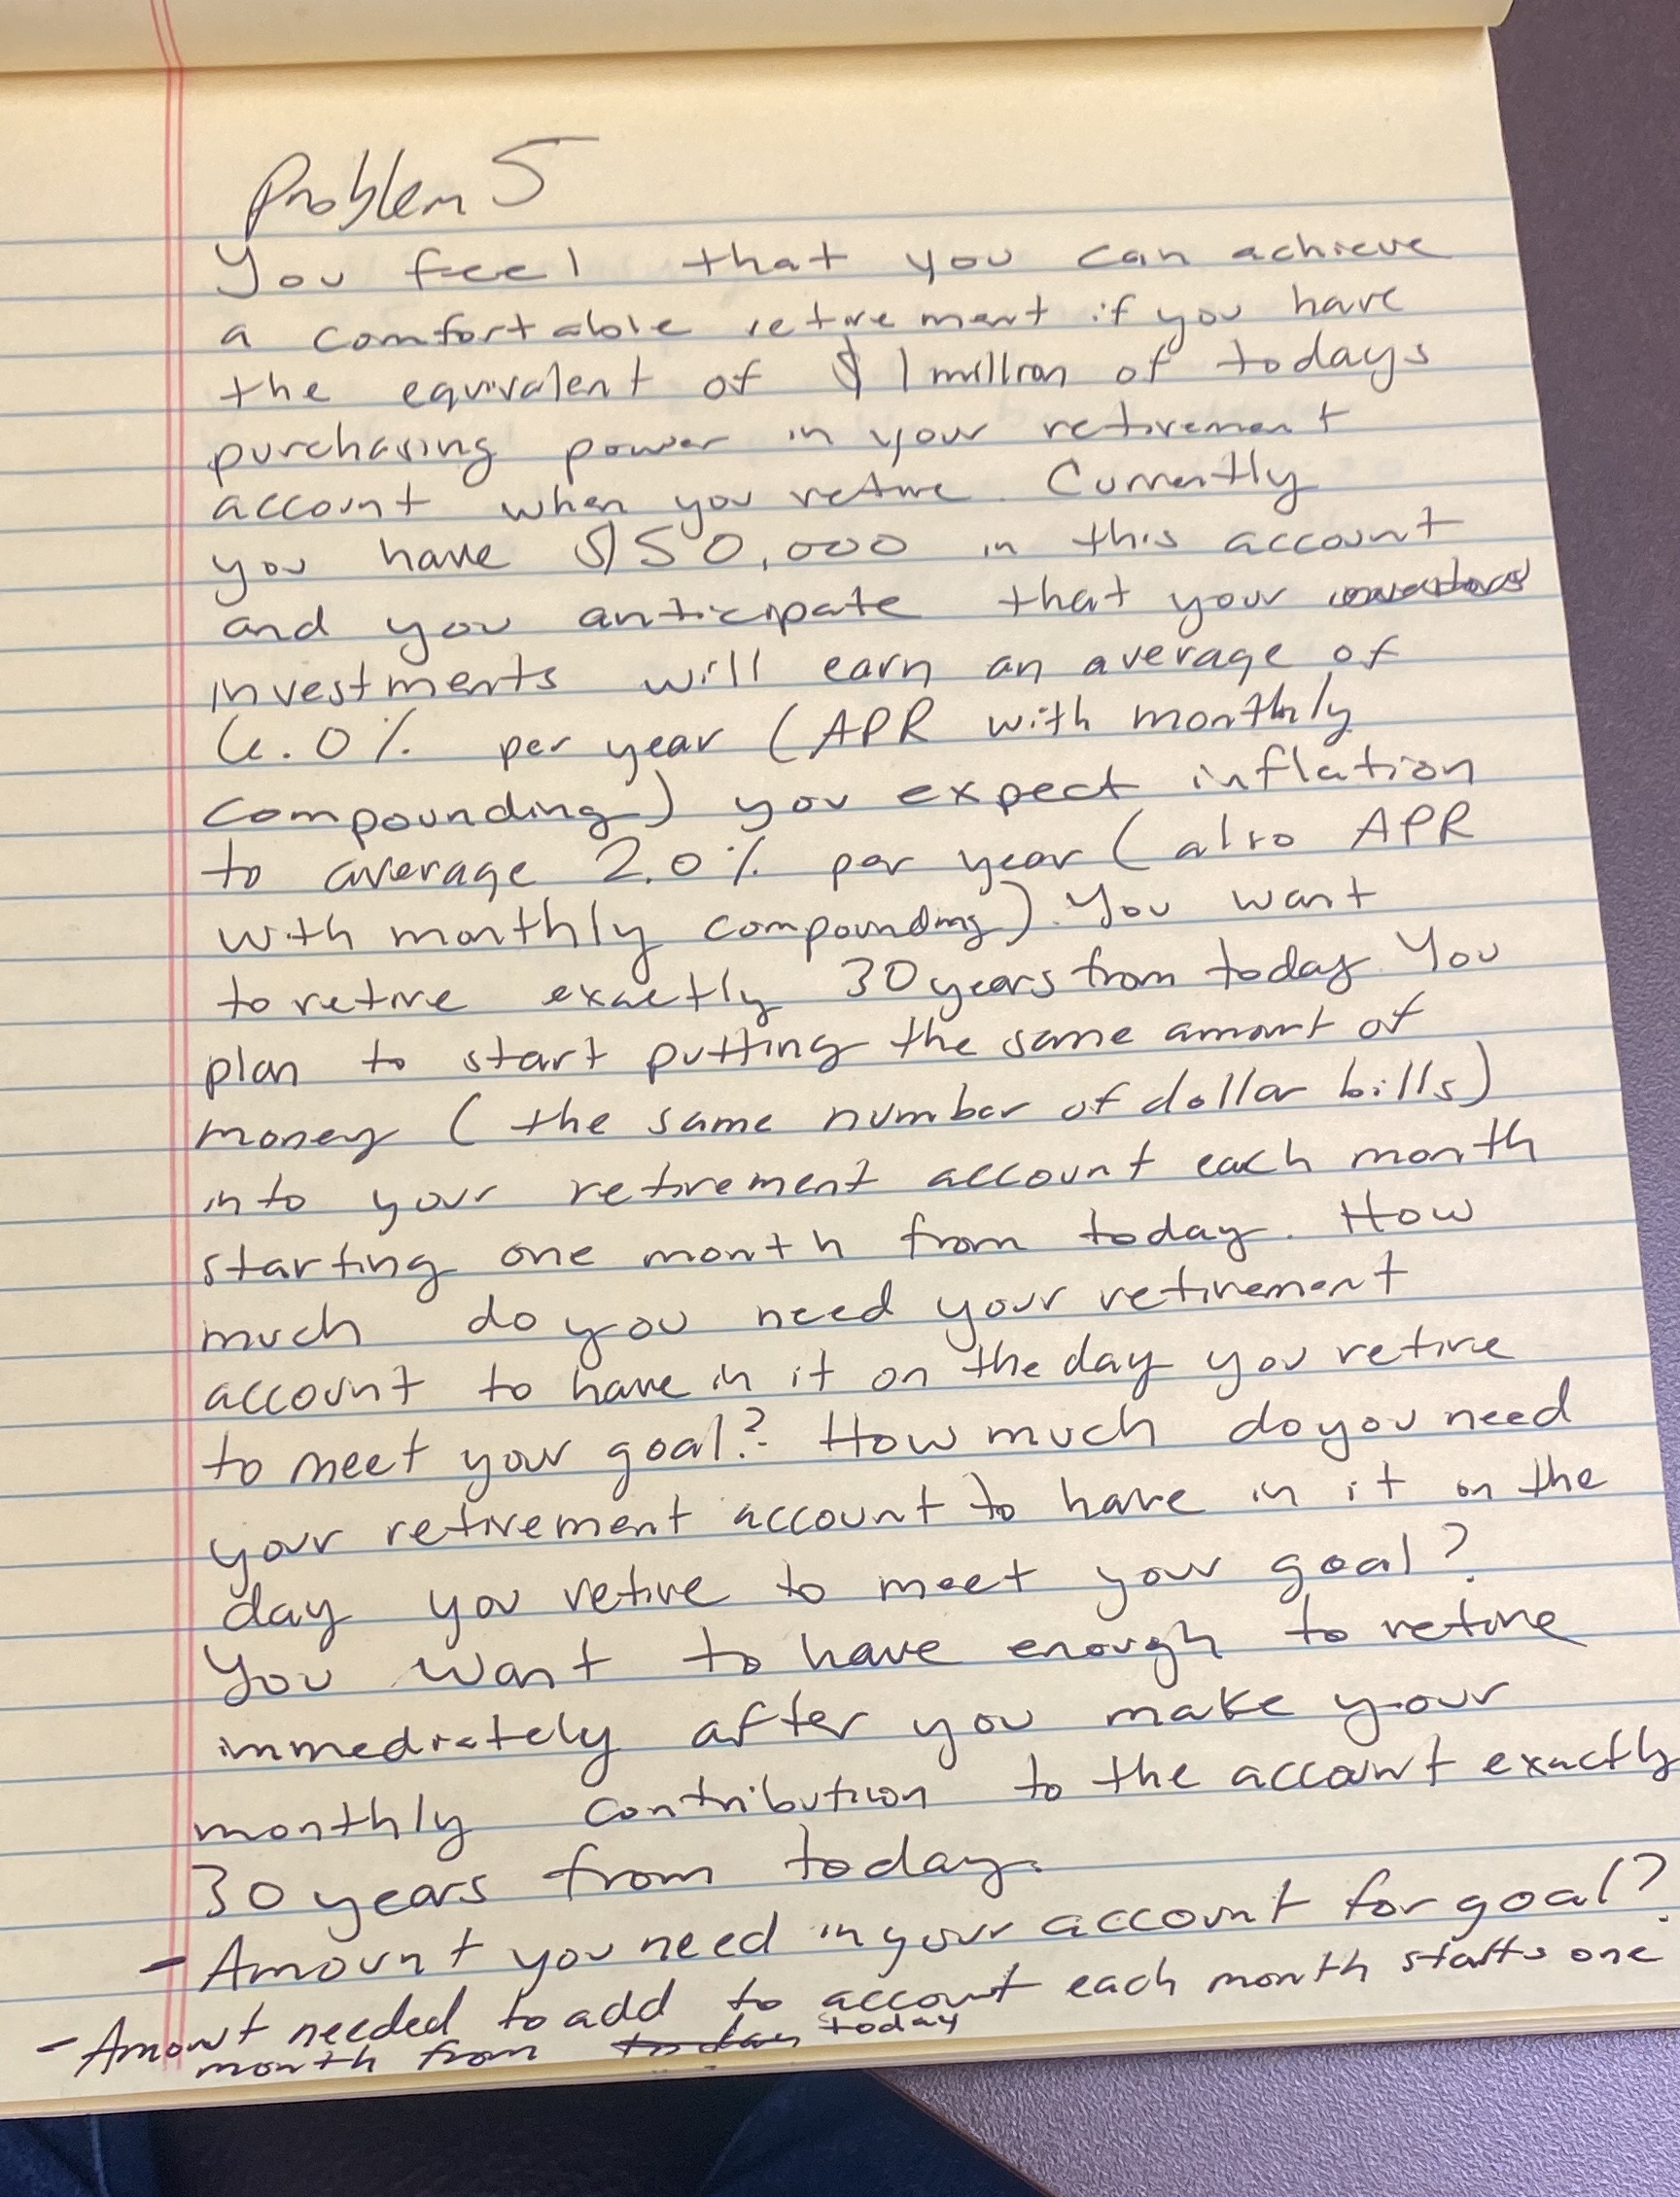 Problem 5
You feel that you can achieve
a comfortable retirement if you have
the equivalent of $1 million of todays
purchasing power in your retirement
account when you retire. Currently
you have $50,000 in this account
and you anticipate that your
investments will earn an average of
6.0% per year (APR with monthly
compounding) you expect inflation
to average 2.0% per year (also APR
with monthly compounding). You want
to retire exactly 30 years from today. You
plan to start putting the same amount of
money (the same number of dollar bills)
into your retirement account each month
starting one month from today. How
much do you need your retirement
account to have in it on the day you retire
to meet your goal? How much do you need
your retirement account to have in it on the
day you retire to meet your goal?
You want to have enough to retire
immediately after you make your
monthly contribution to the account exactly
30 years from today.
- Amount you need in your account for goal?
- Amount needed to add to account each month starts one
month from today